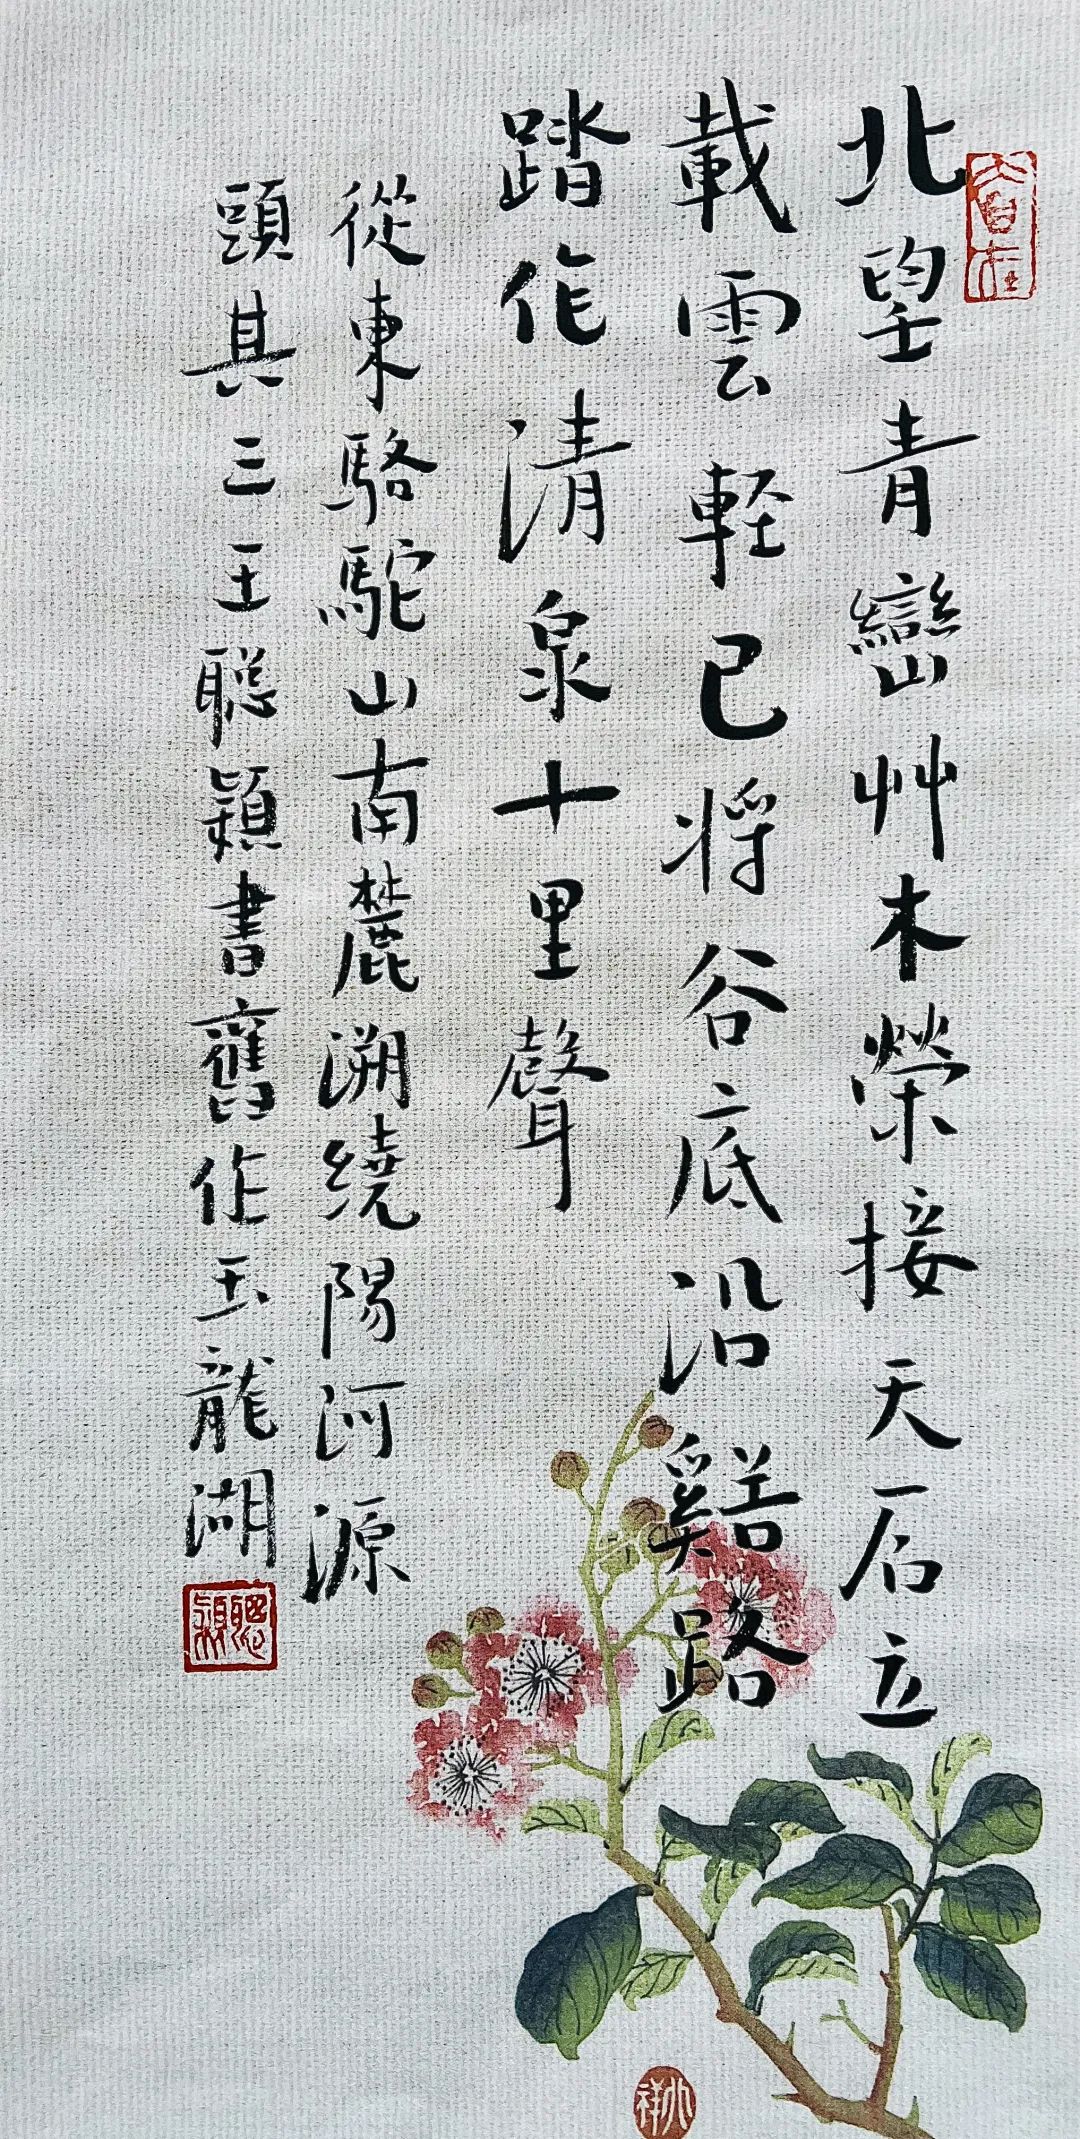 北望青巒艸木榮接天居立
載雲軽已將谷底沿谿路
踏作清泉十里聲
從東駱駝山南麓溯繞陽河源
頭其三王聡穎書舊作玉龍湖
大自在
聰穎